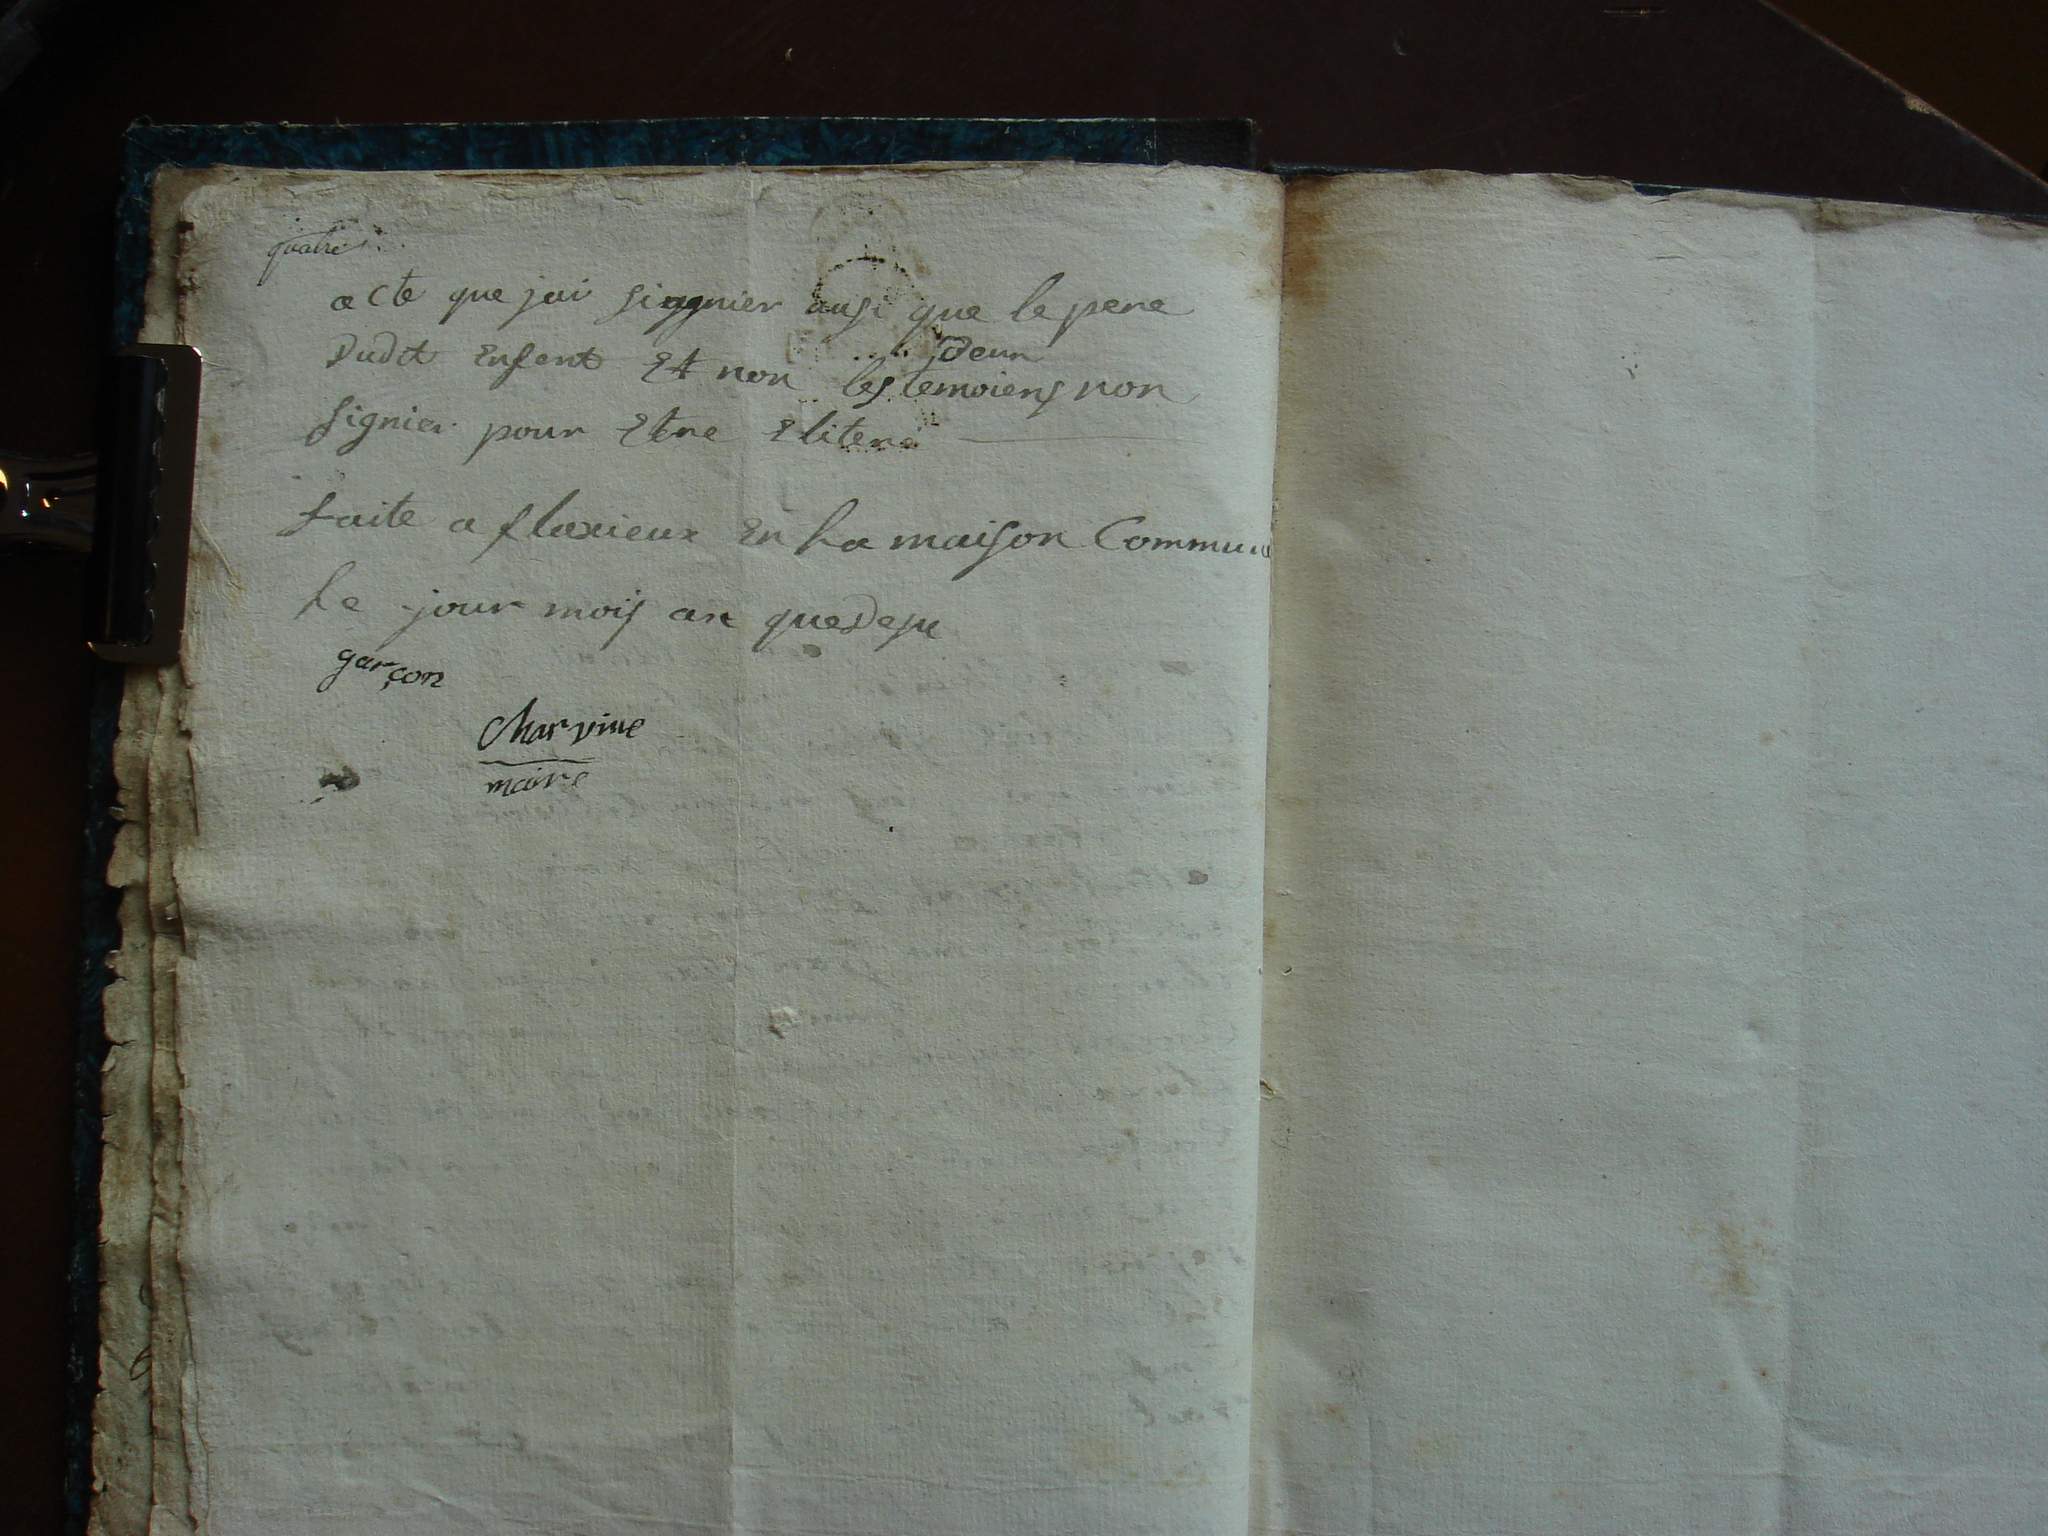 quatre
acte que jai siggnier ausi que le pere
dudit Enfent Et non les deux temoiens non
signier pour Etre Elitere
faite a flaxieux En La maison Commune
Le jour mois an quedesu
garçon
Charvine
maire